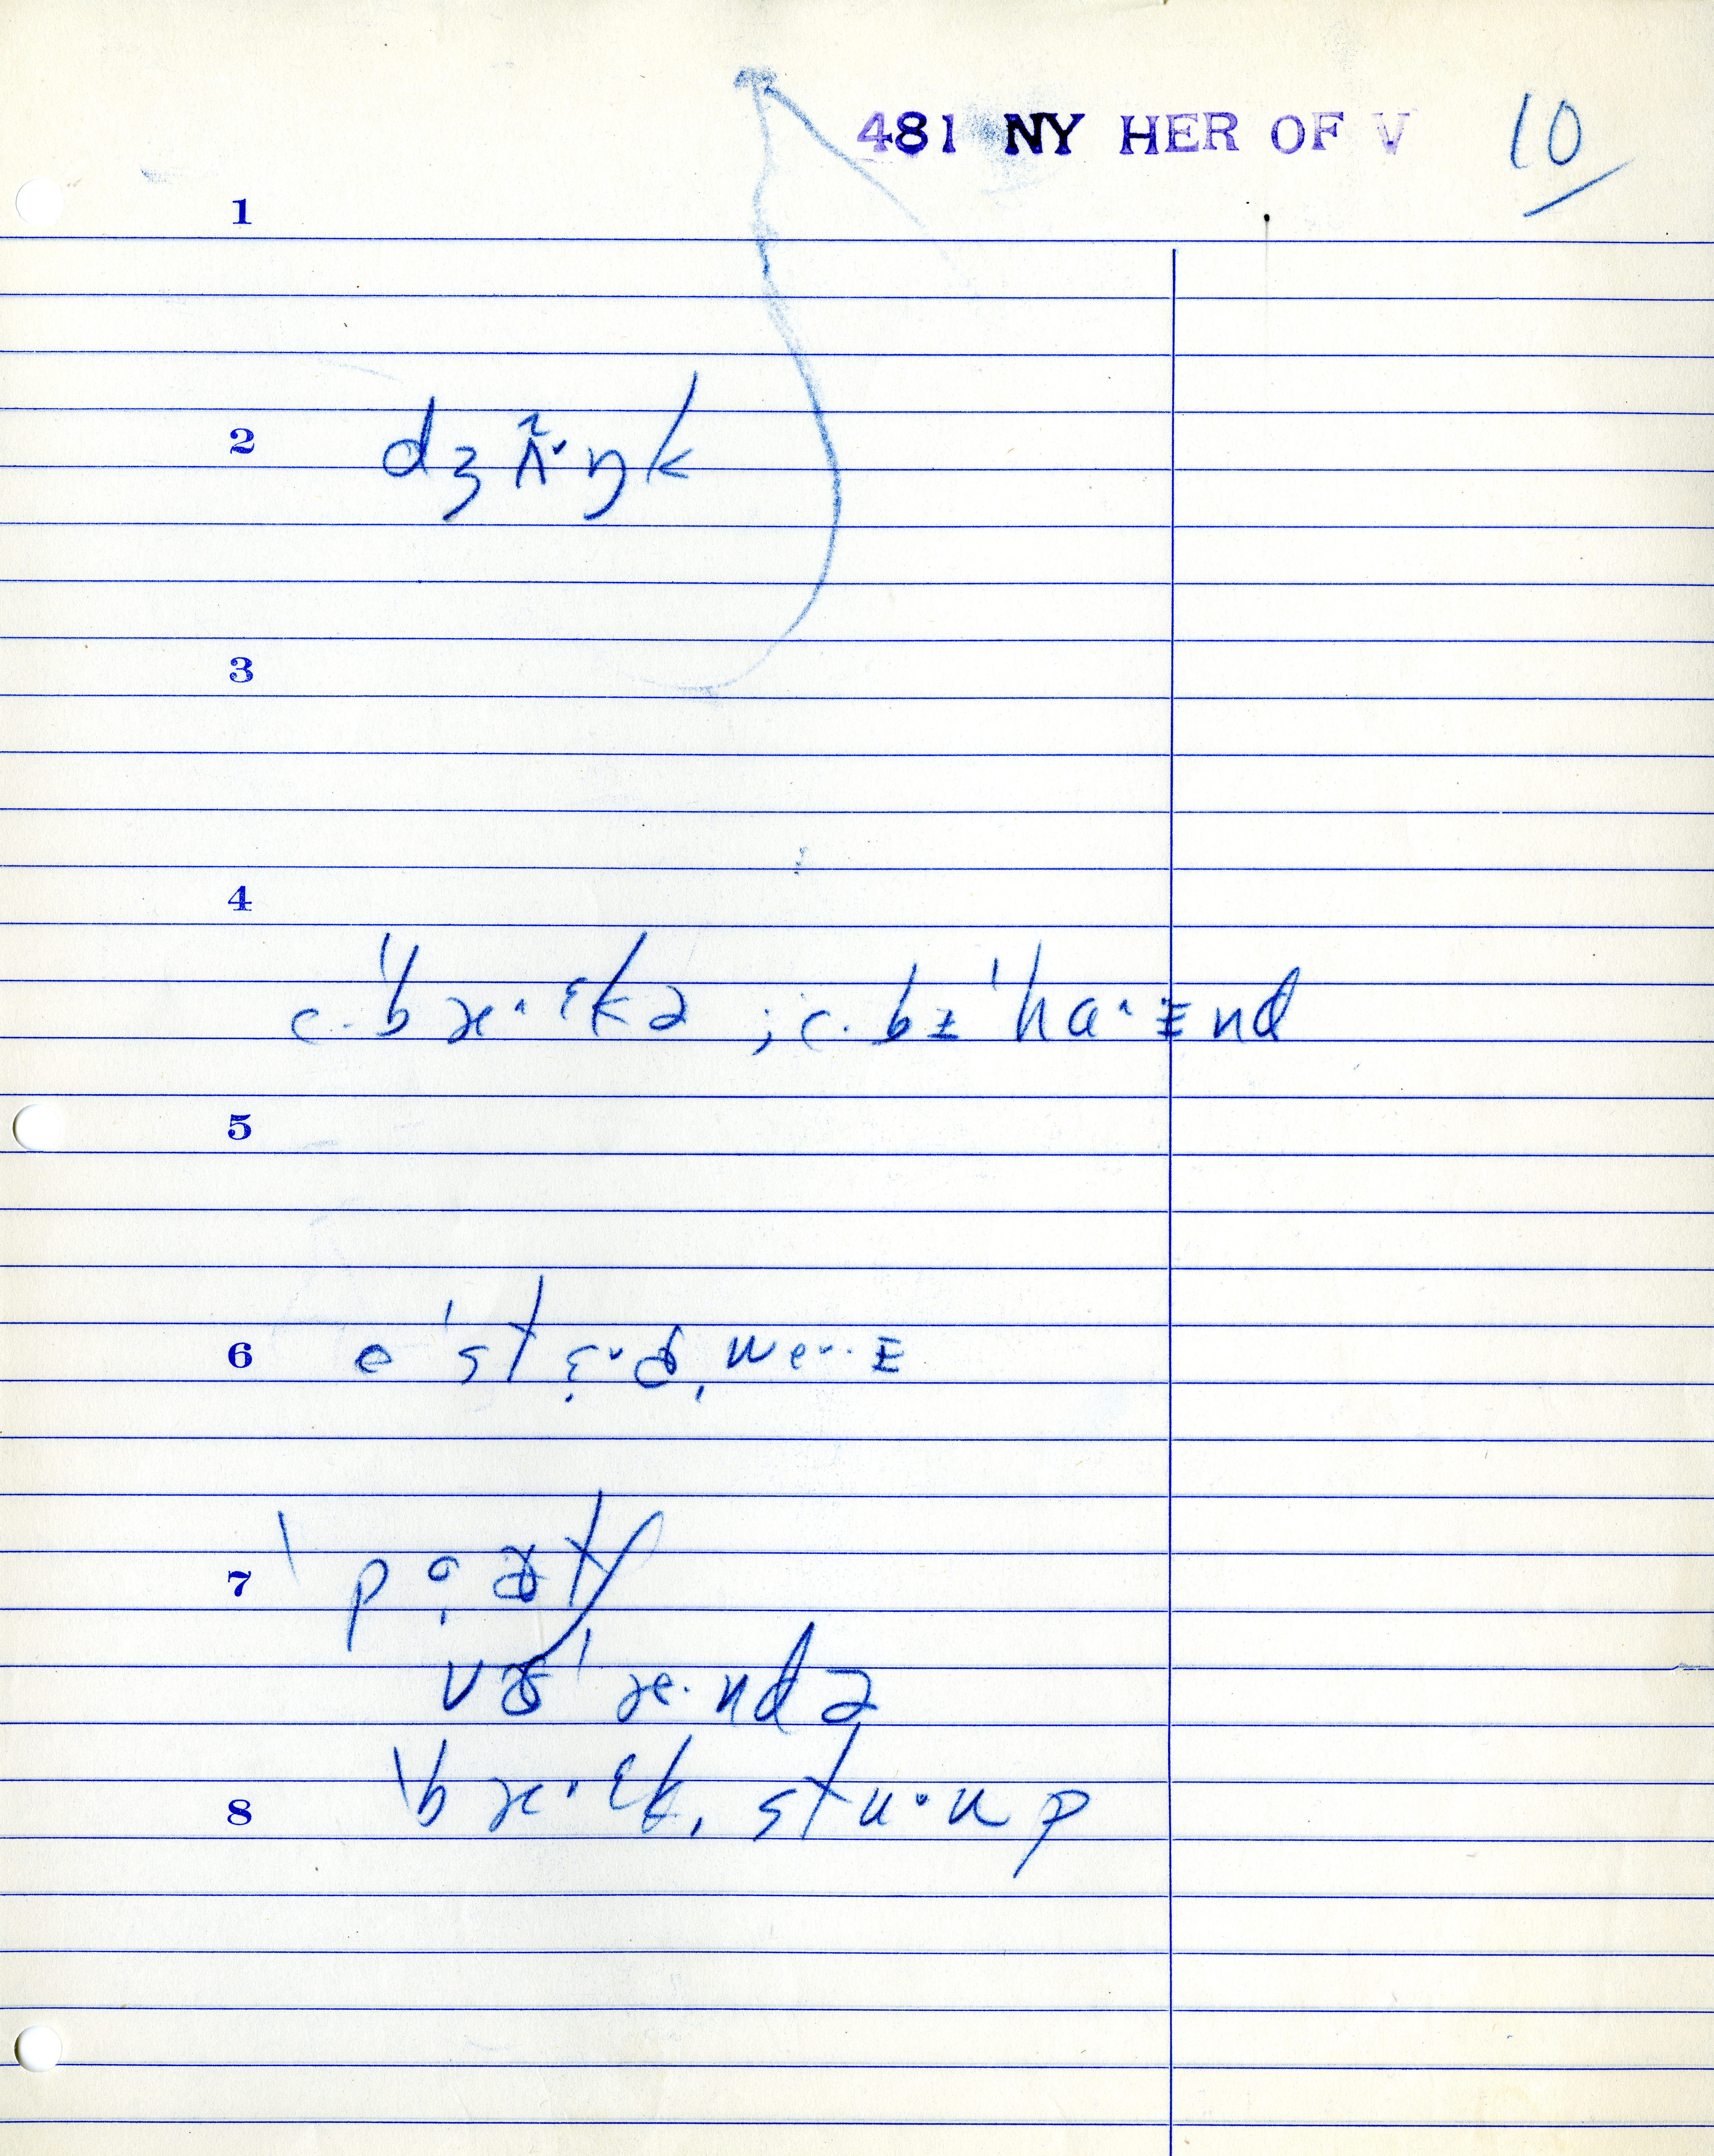 481 NY HER OF V 10
1
2 dʒʌ̃˅ŋk
3
4
c. ˈbæ˄ɛkə ; c. bɪˈha˄ɪnd
5
6 əˈstɛ˅dˌwe˅·ɪ
7 ˈpɔ̣ɚtʃ
vɚˈæ·ndə
8 ˈbæ·ɛkˌstu˅up